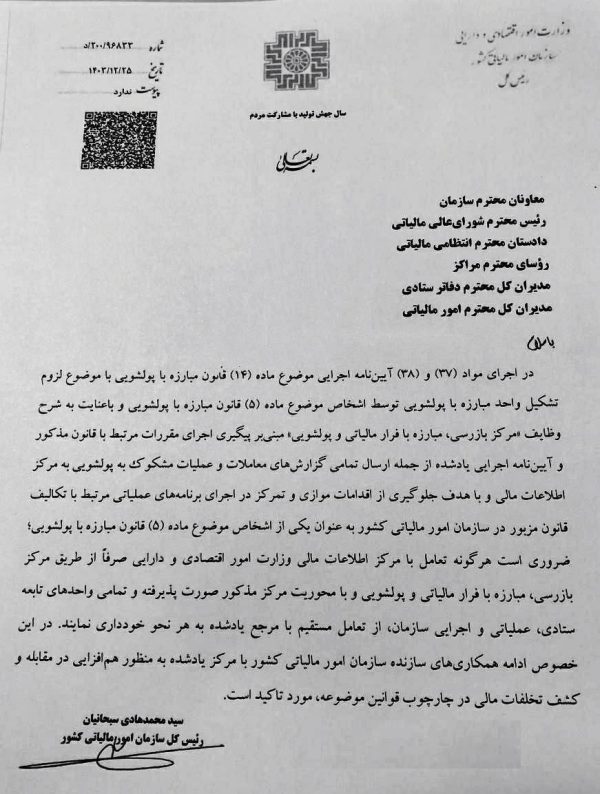 وزارت امور اقتصادی و دارایی
سازمان امور مالیاتی کشور
رئیس کل
شماره ۲۰۰/۹۶۸۳۳/د
تاریخ ۱۴۰۳/۱۲/۲۵
پیوست ندارد
سال جهش تولید با مشارکت مردم
بسمه تعالی
معاونان محترم سازمان
رئیس محترم شورای‌عالی مالیاتی
دادستان محترم انتظامی مالیاتی
رؤسای محترم مراکز
مدیران کل محترم دفاتر ستادی
مدیران کل محترم امور مالیاتی
با سلام
در اجرای مواد (۳۷) و (۳۸) آیین‌نامه اجرایی موضوع ماده (۱۴) قانون مبارزه با پولشویی با موضوع لزوم
تشکیل واحد مبارزه با پولشویی توسط اشخاص موضوع ماده (۵) قانون مبارزه با پولشویی و باعنایت به شرح
وظایف «مرکز بازرسی، مبارزه با فرار مالیاتی و پولشویی» مبنی‌بر پیگیری اجرای مقررات مرتبط با قانون مذکور
و آیین‌نامه اجرایی یادشده از جمله ارسال تمامی گزارش‌های معاملات و عملیات مشکوک به پولشویی به مرکز
اطلاعات مالی و با هدف جلوگیری از اقدامات موازی و تمرکز در اجرای برنامه‌های عملیاتی مرتبط با تکالیف
قانون مزبور در سازمان امور مالیاتی کشور به عنوان یکی از اشخاص موضوع ماده (۵) قانون مبارزه با پولشویی؛
ضروری است هرگونه تعامل با مرکز اطلاعات مالی وزارت امور اقتصادی و دارایی صرفاً از طریق مرکز
بازرسی، مبارزه با فرار مالیاتی و پولشویی و با محوریت مرکز مذکور صورت پذیرفته و تمامی واحدهای تابعه
ستادی، عملیاتی و اجرایی سازمان، از تعامل مستقیم با مرجع یادشده به هر نحو خودداری نمایند. در این
خصوص ادامه همکاری‌های سازنده سازمان امور مالیاتی کشور با مرکز یادشده به منظور هم‌افزایی در مقابله و
کشف تخلفات مالی در چارچوب قوانین موضوعه، مورد تاکید است.
سید محمدهادی سبحانیان
رئیس کل سازمان امور مالیاتی کشور